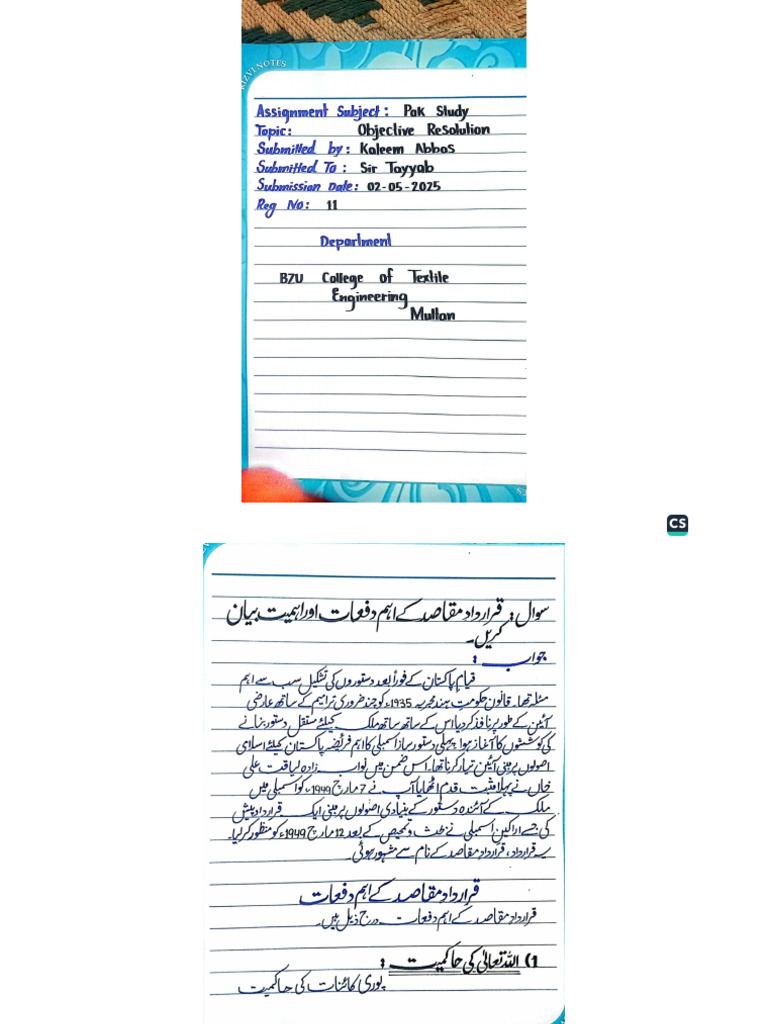 RIZVI NOTES
Assignment Subject: Pak Study
Topic: Objective Resolution
Submitted by: Kaleem Abbas
Submitted To: Sir Tayyab
Submission Date: 02-05-2025
Reg No: 11
Department
BZU College of Textile
Engineering
Multan
CS
سوال: قرارداد مقاصد کے اہم دفعات اور اہمیت بیان
کریں۔
جواب:
قیام پاکستان کے فوراً بعد دستوروں کی تشکیل سب سے اہم
مسئلہ تھا۔ قانون حکومت ہند مجریہ 1935ء کو چند ضروری ترامیم کے ساتھ عارضی
آئین کے طور پر نافذ کر دیا، اس کے ساتھ ساتھ ملک کیلئے مستقل دستور بنانے
کی کوششوں کا آغاز ہوا۔ پہلی دستور ساز اسمبلی کا اہم فریضہ پاکستان کیلئے اسلامی
اصولوں پر مبنی آئین تیار کرنا تھا۔ اس ضمن میں نواب زادہ لیاقت علی
خاں نے پہلا مثبت قدم اٹھایا آپ نے 7 مارچ 1949ء کو اسمبلی میں
ملک کے آئندہ دستور کے بنیادی اصولوں پر مبنی ایک قرارداد پیش
کی جسے اراکین اسمبلی نے بحث و تمحیص کے بعد 12 مارچ 1949ء کو منظور کر لیا۔
یہ قرارداد، قرارداد مقاصد کے نام سے مشہور ہوئی۔
قرارداد مقاصد کے اہم دفعات
قرارداد مقاصد کے اہم دفعات درج ذیل ہیں۔
1) اللہ تعالیٰ کی حاکمیت:
پوری کائنات کی حاکمیت